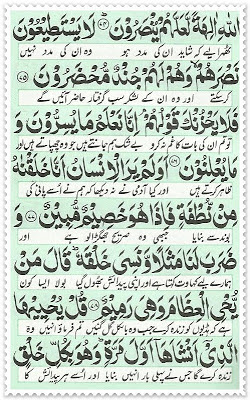 اللّٰهِ اٰلِهَةً لَّعَلَّهُمْ يُنْصَرُوْنَ ﴿٧٤﴾ لَا يَسْتَطِيْعُوْنَ
ٹھہرا لیے کہ شاید ان کی مدد ہو وہ ان کی مدد نہیں
نَصْرَهُمْ وَهُمْ لَهُمْ جُنْدٌ مُّحْضَرُوْنَ ﴿٧٥﴾
کرسکتے اور وہ ان کے لشکر سب گرفتار حاضر آئیں گے
فَلَا يَحْزُنْكَ قَوْلُهُمْ اِنَّا نَعْلَمُ مَا يُسِرُّوْنَ وَ
تو تم ان کی بات کا غم نہ کرو بے شک ہم جانتے ہیں جو وہ چھپاتے ہیں اور
مَا يُعْلِنُوْنَ ﴿٧٦﴾ اَوَلَمْ يَرَ الْاِنْسَانُ اَنَّا خَلَقْنٰهُ
ظاہر کرتے ہیں اور کیا آدمی نے نہ دیکھا کہ ہم نے اسے پانی کی
مِنْ نُّطْفَةٍ فَاِذَا هُوَ خَصِيْمٌ مُّبِيْنٌ ﴿٧٧﴾ وَ
بوند سے بنایا جبھی وہ صریح جھگڑالو ہے اور
ضَرَبَ لَنَا مَثَلًا وَّنَسِيَ خَلْقَهٗ قَالَ مَنْ
ہمارے لیے کہاوت کہتا ہے اور اپنی پیدائش بھول گیا بولا ایسا کون
يُّحْيِ الْعِظَامَ وَهِيَ رَمِيْمٌ ﴿٧٨﴾ قُلْ يُحْيِيْهَا
ہے کہ ہڈیوں کو زندہ کرے جب وہ بالکل گل گئیں تم فرماؤ انہیں وہ
الَّذِيْٓ اَنْشَاَهَآ اَوَّلَ مَرَّةٍ وَهُوَ بِكُلِّ خَلْقٍ
زندہ کرے گا جس نے پہلی بار انہیں بنایا اور اسے ہر پیدائش کا